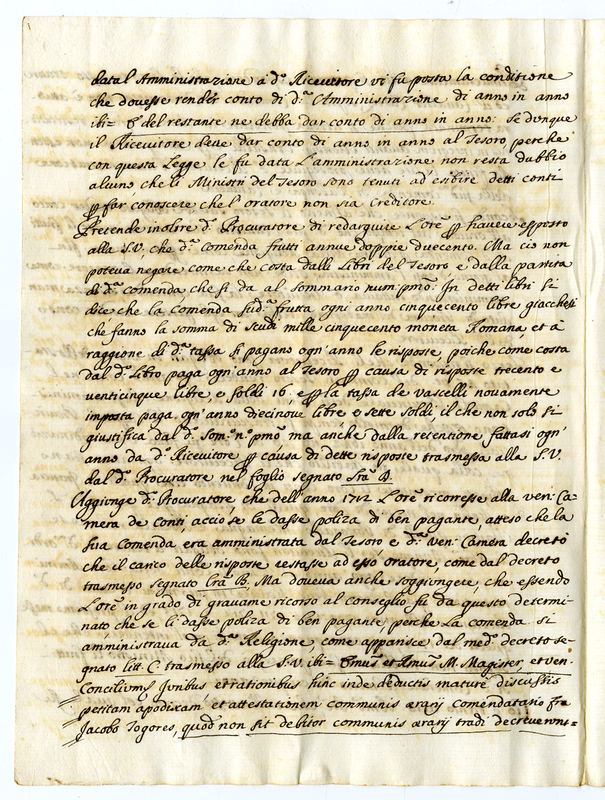 data l'Amministrazione à d.º Ricevitore vi fu posta la conditione
che dovesse render conto di d.ª Amministrazione di anno in anno
ibi= & del restante ne debba dar conto di anno in anno: se dunque
il Ricevitore deve dar conto di anno in anno al Tesoro, perche
con questa Legge le fu data l'amministrazione non resta dubbio
alcuno che li Ministri del Tesoro sono tenuti ad'esibire detti conti
ꝑ far conoscere che l'oratore non sia Creditore.
Pretende inoltre d.º Procuratore di redarguire L'ore ꝑ haver esposto
alla S.V. che d.ª comenda frutti annue doppie duecento. Ma cio non
poteva negare come che costa dalli Libri del Tesoro e dalla partita
di d.ª comenda, che si da al sommario num: pmo: In detti libri si
dice che la comenda sud.ª frutta ogni anno cinquecento libre giacchesi
che fanno la somma di Scudi mille cinquecento moneta Romana, et à
raggione di d.ª tassa si pagano ogn'anno le risposte, poiche come costa
dal d.º Libro paga ogn'anno al Tesoro ꝑ causa di risposte trecento e
venticinque libre, e soldi 16. e ꝑ la tassa de vascelli novamente
imposta paga ogn'anno diecinove libre e sette soldi, il che non solo si
giustifica dal d.º Som.º n.º pmo ma anche dalla retentione fattasi ogn'
anno da d.º Ricevitore ꝑ causa di dette risposte trasmessa alla S.V.
dal d.º Procuratore nel foglio segnato
Aggionge d.º Procuratore che dell'anno 1712 L'ore ricorresse alla ven: Ca-
mera de conti acciò se le dasse poliza di ben pagante, atteso che la
sua Comenda era amministrata dal Tesoro e d.ª Ven: Camera decretò
che il carico delle risposte restasse ad esso oratore, come dal decreto
trasmesso segnato Lra B. Ma doveva anche soggiongere, che essendo
L'ore in grado di gravame ricorso al Conseglio fu da questo determi-
nato che se li dasse poliza di ben pagante, perche La comenda si
amministrava da d.ª Religione, come apparisce dal med.º decreto se-
gnato litt. C. trasmesso alla S.V. ibi= Emus et Rmus M. Magister, et ven.
Concilium Juribus et rationibus hinc inde deductis mature discussis
petitam apodixam et attestationem communis ærarij comendatario fra
Jacobo Togores, quod non sit debitor communis ærarij tradi decreverunt=